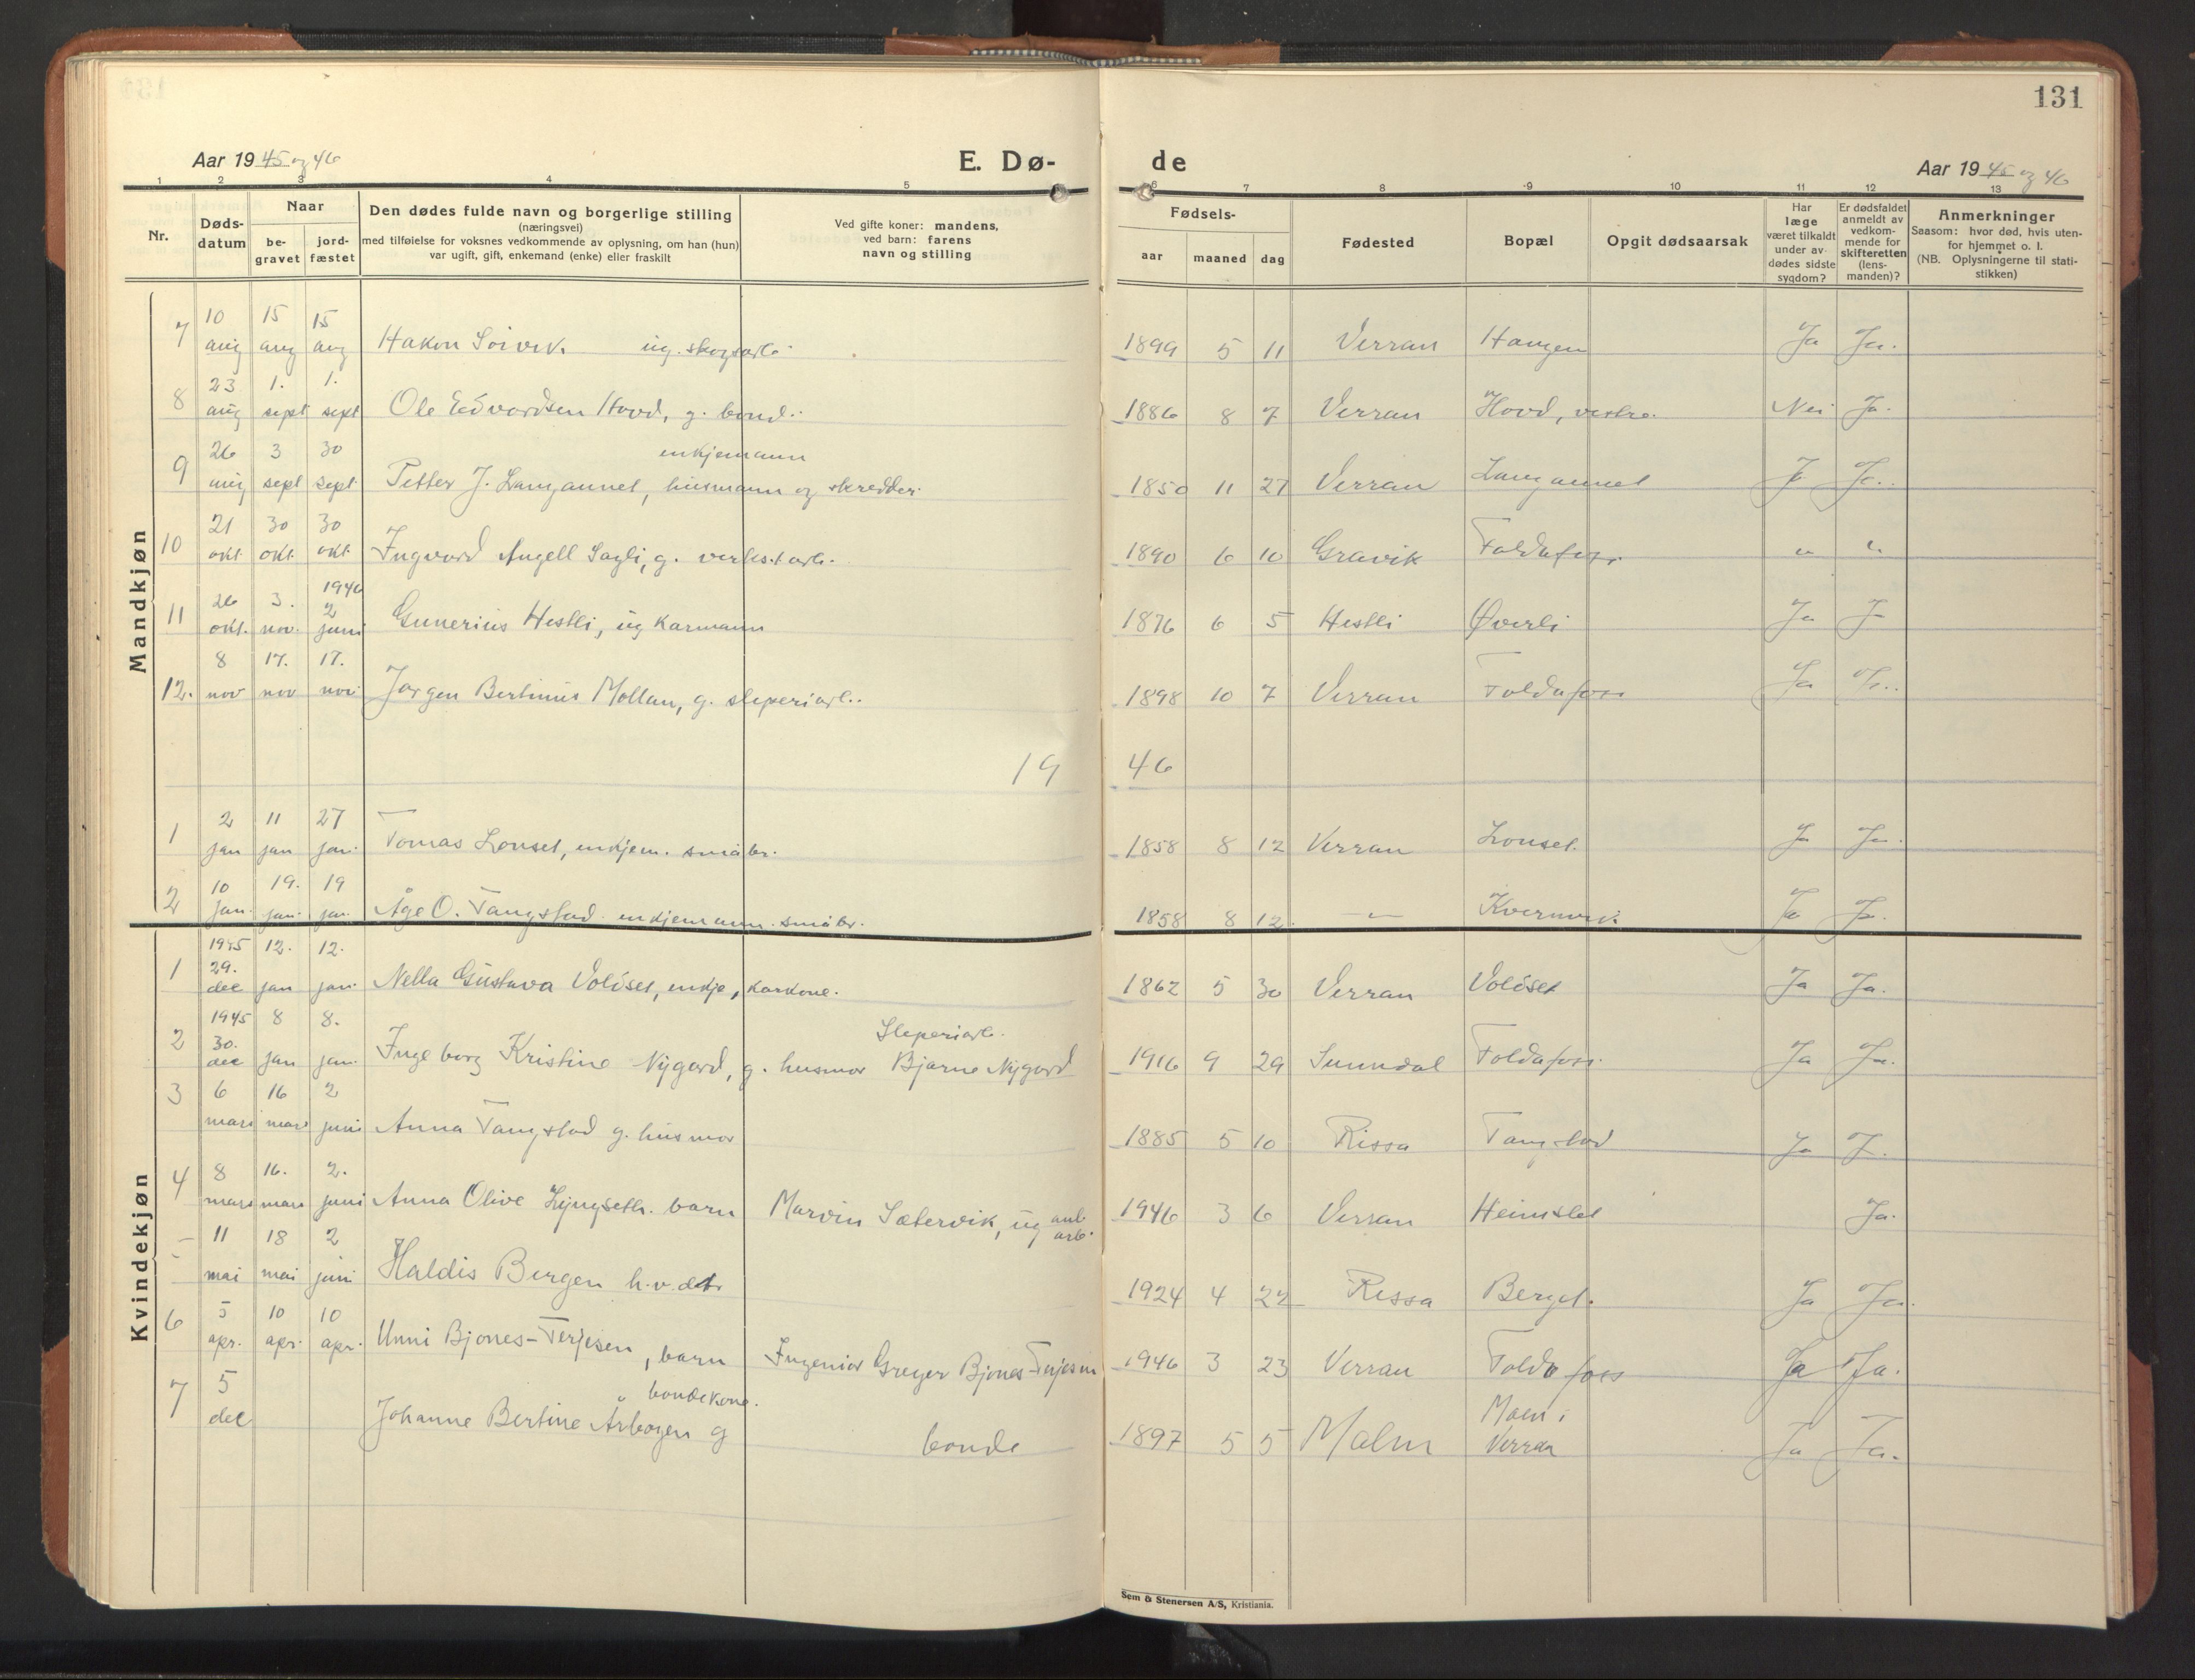 131
Aar 19 45 og 46
E. Dø-
de
Aar 19 45 og 46
1 2 3 4 5 6 7 8 9 10 11 12 13
Nr.
Døds-
datum
Naar
be-
gravet
jord-
fæstet
Den dødes fulde navn og borgerlige stilling
(næringsvei)
med tilføielse for voksnes vedkommende av oplysning, om han (hun)
var ugift, gift, enkemand (enke) eller fraskilt
Ved gifte koner: mandens,
ved barn: farens
navn og stilling
Fødsels-
aar maaned dag
Fødested
Bopæl
Opgit dødsaarsak
Har
læge
været tilkaldt
under av-
dødes sidste
sygdom?
Er dødsfaldet
anmeldt av
vedkom-
mende for
skifteretten
(lens-
manden)?
Anmerkninger
Saasom: hvor død, hvis uten-
for hjemmet o. l.
(NB. Oplysningerne til stati-
stikken)
Mandkjøn
10 15 15
7 aug aug aug Hakon Soivik ug. skogsarb. 1899 5 11 Verran Haugen Ja Ja.
23 1. 1.
8 aug sept sept Ole Edvardsen Hovd, g. bond. 1886 8 7 Verran Hovd, vestre. Nei Ja.
26 3 30 enkjemann
9 aug sept sept Petter J. Langannet, husmann og skredder. 1850 11 27 Verran Langannet J Ja.
21 30 30
10 okt. okt. okt. Ingvard Angell Sagli, g. verkst.arb. 1890 6 10 Gravik Foldafoss " "
1946
26 3. 2
11 okt. nov. juni Gunerius Hestli, ug karmann 1876 6 5 Hestli Øverli Ja J
8 17. 17.
12. nov nov nov Jørgen Bertinus Mollan, g. sleperiarb. 1898 10 7 Verran Foldafoss Ja Ja.
19 46
2 11 27
1 jan jan jan. Tomas Lonset, enkjem. småbr. 1858 8 12 Verran Lonset. Ja Ja.
10 19. 19
2 jan. jan. jan. Åge O. Tangstad enkjemann. småbr. 1858 8 12. —"— Kvernvik. Ja Ja.
Kvindekjøn
1945 12. 12.
29.
1 dec jan jan. Nella Gustava Voldset, enkje, karkone. 1862 5 30 Verran Voldset Ja Ja.
1945 8 8.
30. Sleperiarb.
2 dec jan jan. Ingeborg Kristine Nygard, g. husmor Bjarne Nygard 1916 9 29 Sunndal Foldafoss. Ja Ja.
3 6 16 2
mars mars juni Anna Tangstad g. husmor 1885 5 10 Rissa Tangstad Ja J.
4 8 16. 2.
mars mars juni Anna Olive Lyngseth. barn Marvin Sætervik, ug anl. arb. 1946 3 6 Verran Heimslet Ja.
11 18 2
mai mai juni Haldis Bergen h.v.dtr 1924 4 22 Rissa Berget. Ja Ja.
6 5 10 10
apr. apr. apr. Unni Bjones-Terjesen, barn Ingeniør Greger Bjones-Terjesen 1946 3 23 Verran Foldafoss Ja Ja.
7 5 bondekone.
dec Johanne Bertine Årbogen g bonde 1897 5 5 Malm Moen i Verran Ja Ja.
Sem & Stenersen A/S, Kristiania.